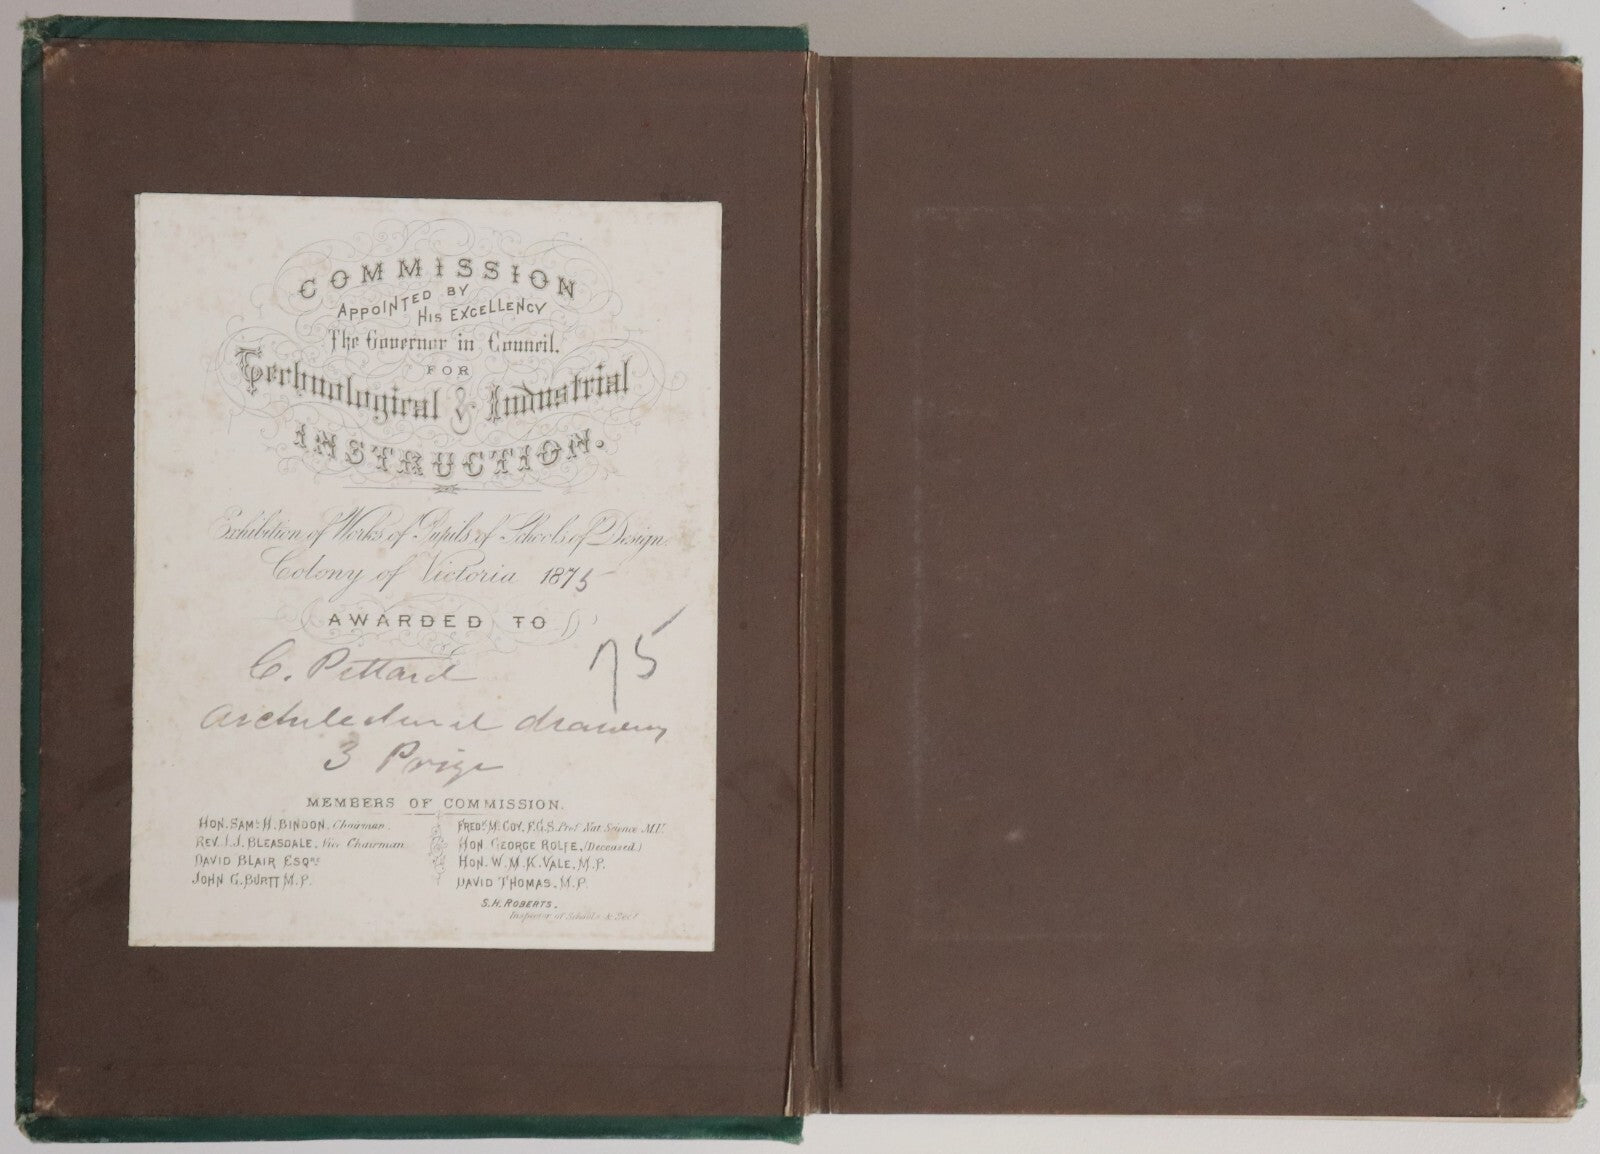 COMMISSION
APPOINTED BY
HIS EXCELLENCY
The Governor in Council.
FOR
Technological & Industrial
INSTRUCTION.
Exhibition of Works of Pupils of Schools of Design.
Colony of Victoria 1875
AWARDED TO
C. Pettard
75
Architectural drawing
3 Prize
MEMBERS OF COMMISSION.
HON. SAML. H. BINDON, Chairman.
REV. J.J. BLEASDALE, Vice Chairman
DAVID BLAIR ESQRE
JOHN G. BURTT M.P.
FREDK. McCOY, F.G.S. Prof. Nat Science M.U.
HON. GEORGE ROLFE, (Deceased.)
HON. W. M. K. VALE, M.P.
DAVID THOMAS, M.P.
S.H. ROBERTS.
Inspector of Schools & Secy